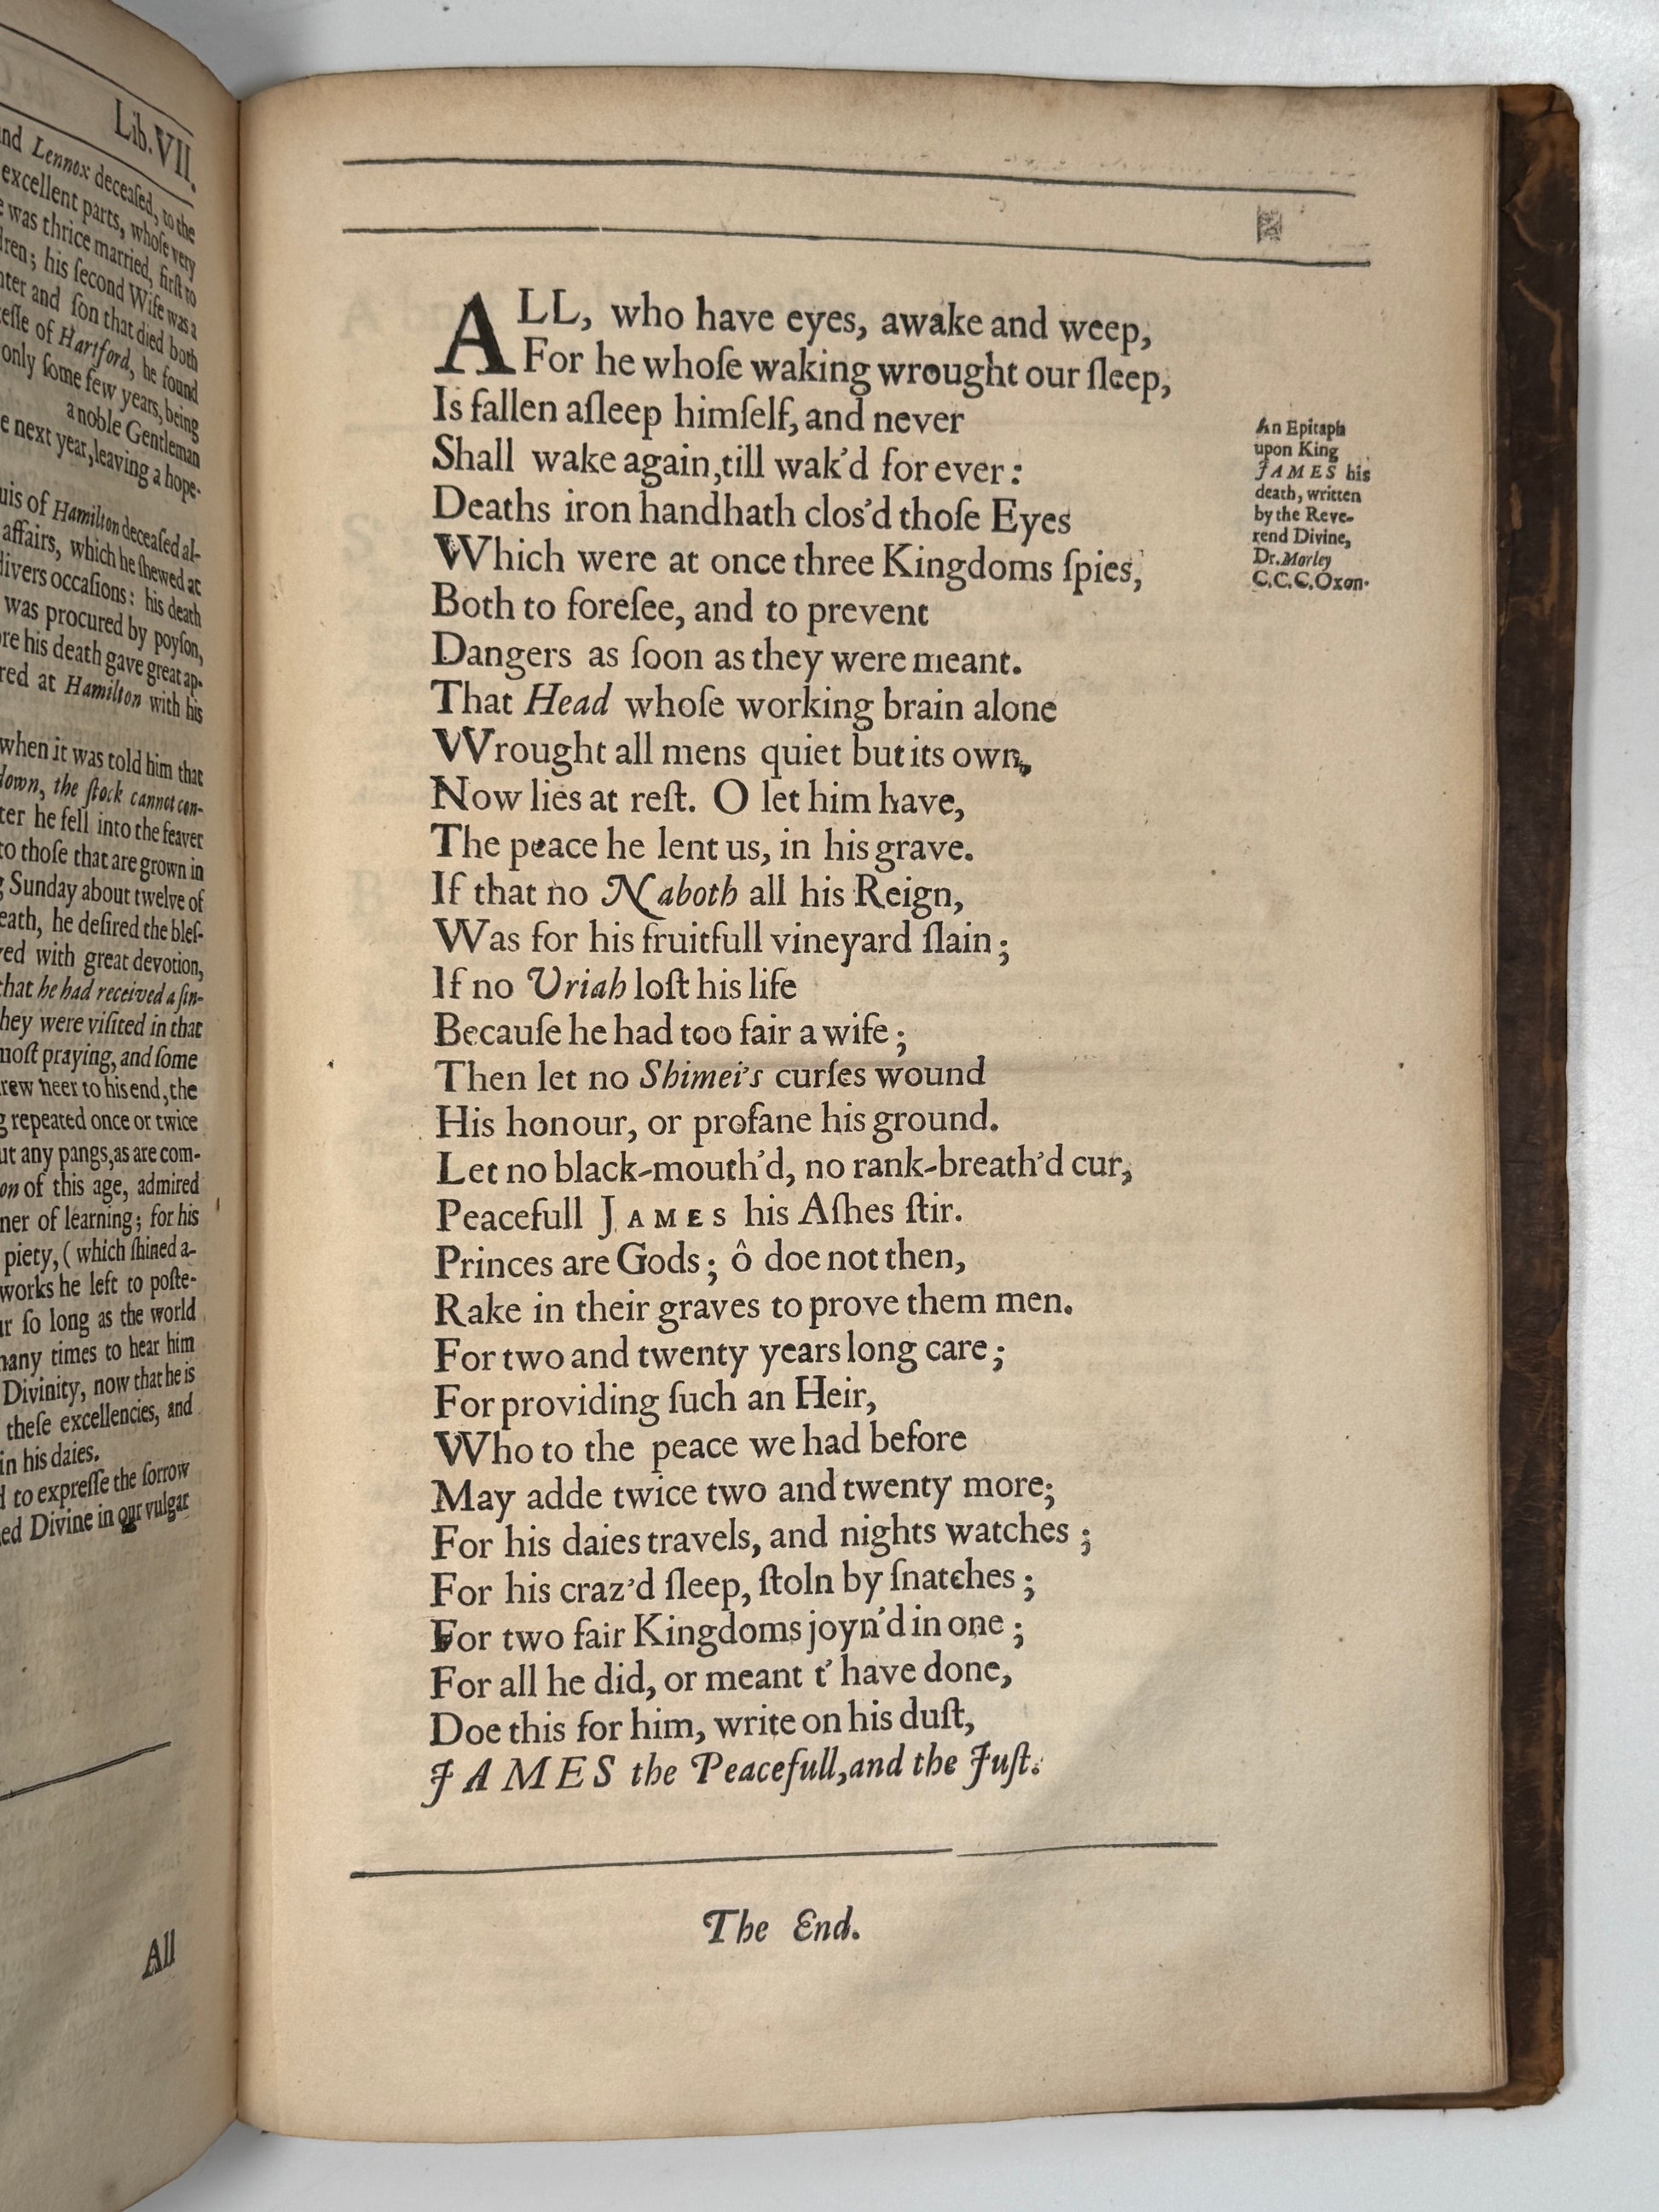 Lib.VII.
nd Lennox deceaſed, to the
excellent parts, whoſe very
was thrice married, firſt to
dren; his ſecond Wife was a
ter and ſon that died both
teſſe of Hartford, he found
only ſome few years, being
a noble Gentleman
e next year, leaving a hope-
uis of Hamilton deceaſed al-
affairs, which he ſhewed at
divers occaſions: his death
was procured by poyſon,
re his death gave great ap-
red at Hamilton with his
when it was told him that
down, the ſtock cannot con-
ter he fell into the feaver
to thoſe that are grown in
g Sunday about twelve of
eath, he deſired the bleſ-
red with great devotion,
that he had received a ſin-
hey were viſited in that
moſt praying, and ſome
rew neer to his end, the
g repeated once or twice
ut any pangs, as are com-
on of this age, admired
ner of learning; for his
piety, (which ſhined a-
works he left to poſte-
ur ſo long as the world
many times to hear him
Divinity, now that he is
theſe excellencies, and
in his daies.
d to expreſſe the ſorrow
ed Divine in our vulgar
All
ALL, who have eyes, awake and weep,
For he whoſe waking wrought our ſleep,
Is fallen aſleep himſelf, and never
Shall wake again, till wak'd for ever:
Deaths iron hand hath clos'd thoſe Eyes
Which were at once three Kingdoms ſpies,
Both to foreſee, and to prevent
Dangers as ſoon as they were meant.
That Head whoſe working brain alone
Wrought all mens quiet but its own,
Now lies at reſt. O let him have,
The peace he lent us, in his grave.
If that no Naboth all his Reign,
Was for his fruitfull vineyard ſlain;
If no Uriah loſt his life
Becauſe he had too fair a wife;
Then let no Shimei's curſes wound
His honour, or profane his ground.
Let no black-mouth'd, no rank-breath'd cur,
Peacefull JAMES his Aſhes ſtir.
Princes are Gods; ô doe not then,
Rake in their graves to prove them men.
For two and twenty years long care;
For providing ſuch an Heir,
Who to the peace we had before
May adde twice two and twenty more;
For his daies travels, and nights watches;
For his craz'd ſleep, ſtoln by ſnatches;
For two fair Kingdoms joyn'd in one;
For all he did, or meant t' have done,
Doe this for him, write on his duſt,
JAMES the Peacefull, and the Juſt.
An Epitaph
upon King
JAMES his
death, written
by the Reve-
rend Divine,
Dr. Morley
C.C.C.Oxon.
The End.